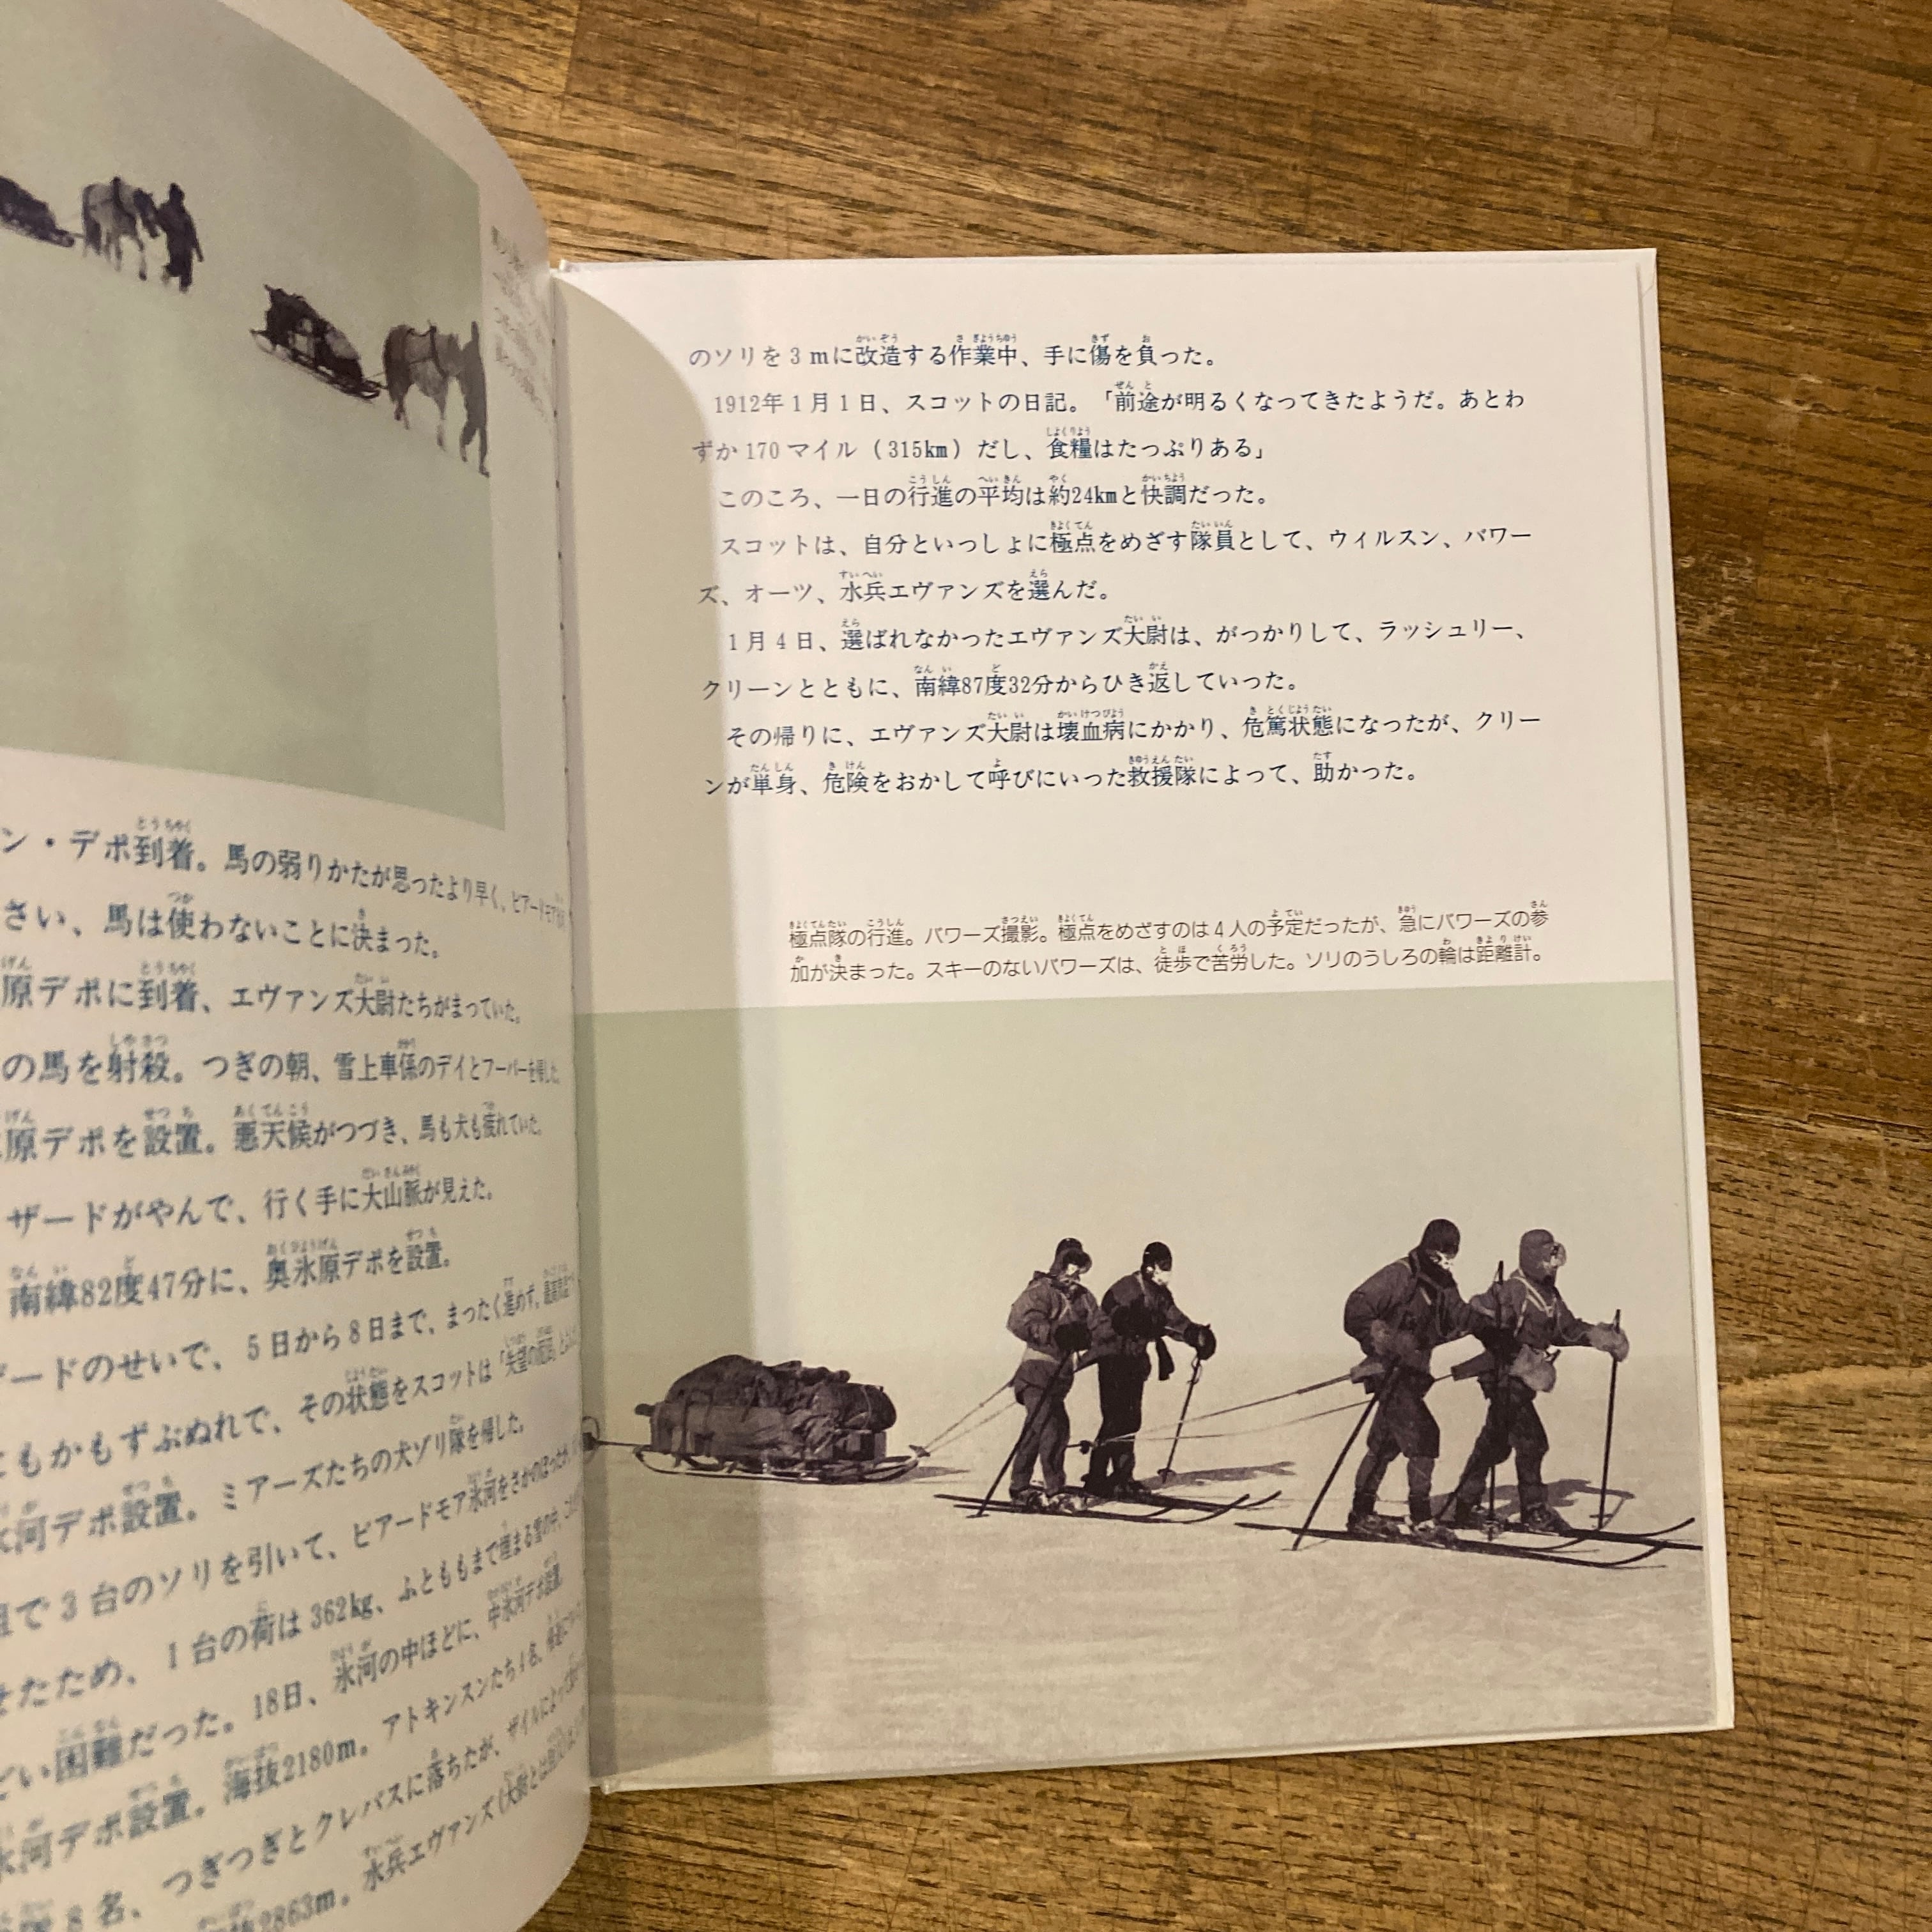 ン・デポ到着。馬の弱りかたが思ったより早く、ビアードモア
さい、馬は使わないことに決まった。
原デポに到着、エヴァンズ大尉たちがまっていた。
の馬を射殺。つぎの朝、雪上車係のデイとフーパーを帰した。
原デポを設置。悪天候がつづき、馬も犬も疲れていた。
ザードがやんで、行く手に大山脈が見えた。
南緯82度47分に、奥氷原デポを設置。
ードのせいで、5日から8日まで、まったく進めず。
もかもずぶぬれで、その状態をスコットは「失望の沼
河デポ設置。ミアーズたちの犬ゾリ隊を帰した。
で3台のソリを引いて、ビアードモア氷河をさかのぼった
せたため、1台の荷は362kg、ふとももまで埋まる雪の中、
どい困難だった。18日、氷河の中ほどに、中氷河デポ設置。
氷河デポ設置。海抜2180m。アトキンスンたち4名、
8名、つぎつぎとクレバスに落ちたが、ザイルによって
2863m。水兵エヴァンズ(大尉とは別人)
のソリを3mに改造する作業中、手に傷を負った。
1912年1月1日、スコットの日記。「前途が明るくなってきたようだ。あとわ
ずか170マイル(315km)だし、食糧はたっぷりある」
このころ、一日の行進の平均は約24kmと快調だった。
スコットは、自分といっしょに極点をめざす隊員として、ウィルスン、バワー
ズ、オーツ、水兵エヴァンズを選んだ。
1月4日、選ばれなかったエヴァンズ大尉は、がっかりして、ラッシュリー、
クリーンとともに、南緯87度32分からひき返していった。
その帰りに、エヴァンズ大尉は壊血病にかかり、危篤状態になったが、クリー
ンが単身、危険をおかして呼びにいった救援隊によって、助かった。
極点隊の行進。バワーズ撮影。極点をめざすのは4人の予定だったが、急にバワーズの参
加が決まった。スキーのないバワーズは、徒歩で苦労した。ソリのうしろの輪は距離計。